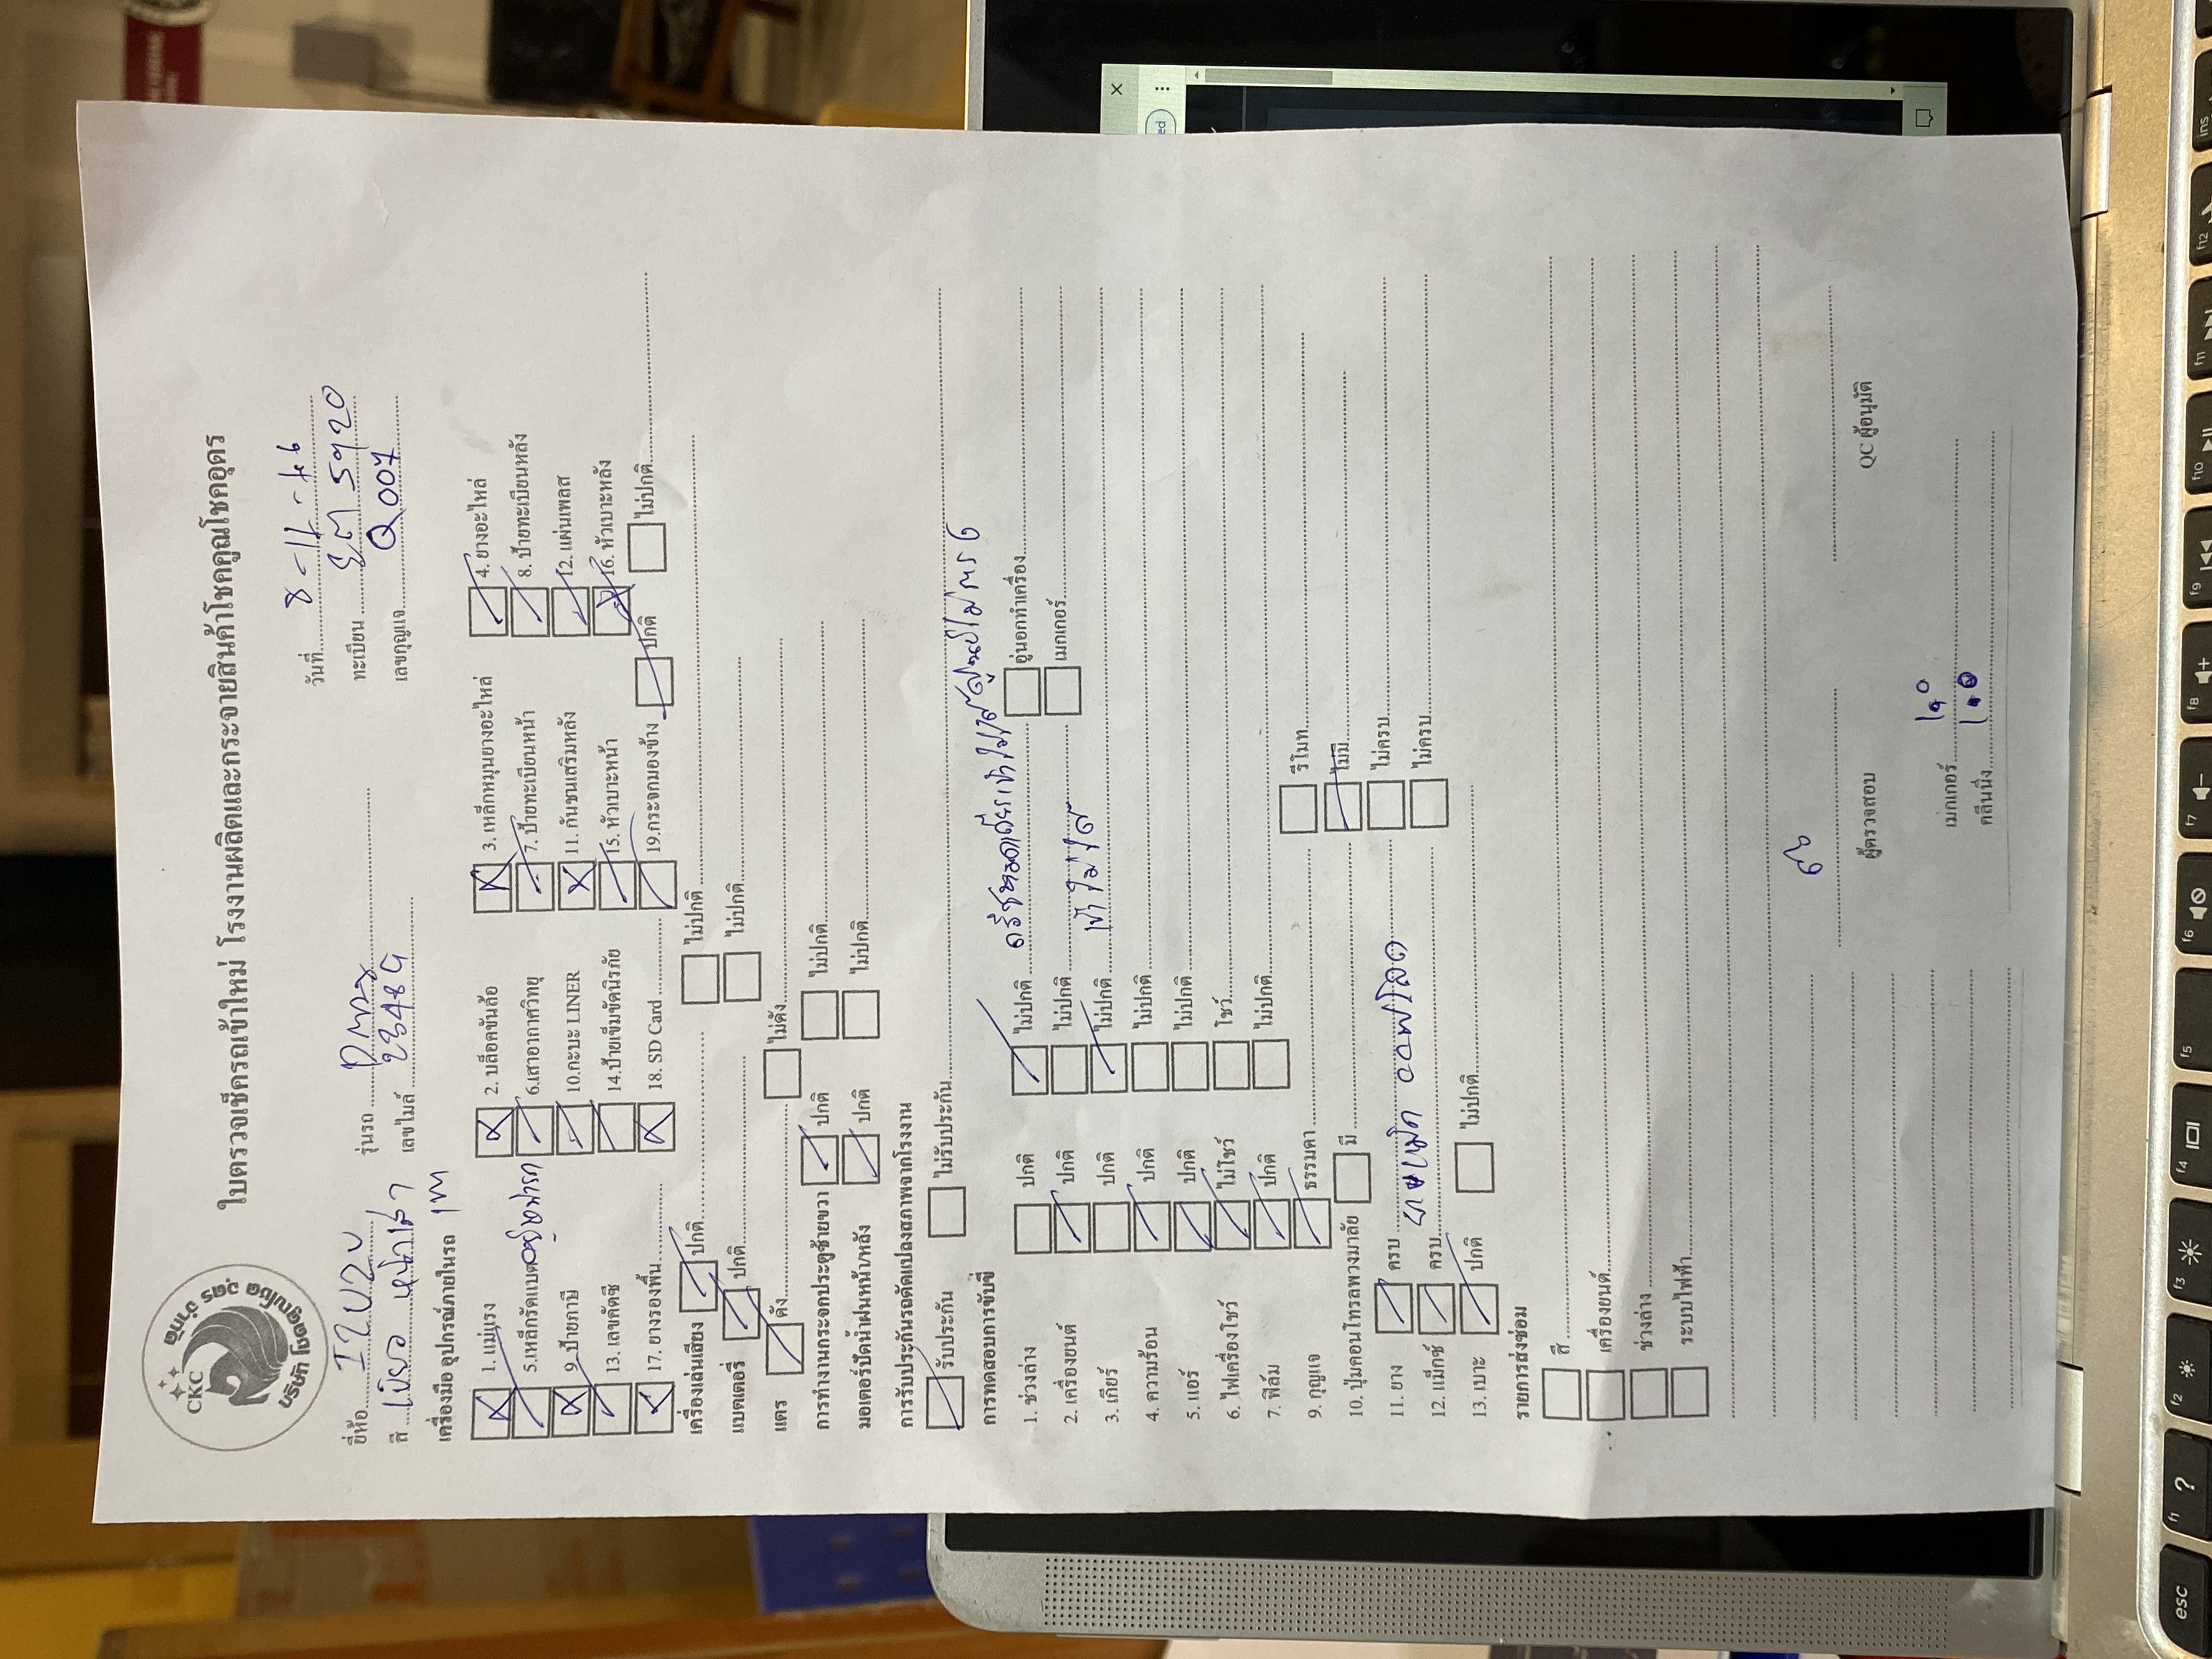 CKC
บริษัท โชคคูณโชค อุดร จำกัด
ใบตรวจเช็ครถเข้าใหม่ โรงงานผลิตและกระจายสินค้าโชคคูณโชคอุดร
วันที่
ยี่ห้อ รุ่นรถ Dmax ทะเบียน 5920
สี เลขไมล์ เลขกุญแจ Q007
เครื่องมือ อุปกรณ์ภายในรถ
1. แม่แรง 2. บล็อคขันล้อ 3. เหล็กหมุนยางอะไหล่ 4. ยางอะไหล่
5.เหล็กรัดแบต 6.เสาอากาศวิทยุ 7. ป้ายทะเบียนหน้า 8. ป้ายทะเบียนหลัง
9. ป้ายภาษี 10.กะบะ LINER 11. กันชนเสริมหลัง 12. แผ่นเพลส
13. เลขคัตซี 14.ป้ายเข็มขัดนิรภัย 15. หัวเบาะหน้า 16. หัวเบาะหลัง
17. ยางรองพื้น 18. SD Card 19.กระจกมองข้าง ปกติ ไม่ปกติ
เครื่องเล่นเสียง ปกติ ไม่ปกติ
แบตเตอรี่ ปกติ ไม่ปกติ
แตร ดัง ไม่ดัง
การทำงานกระจกประตูซ้ายขวา ปกติ ไม่ปกติ
มอเตอร์ปัดน้ำฝนหน้า/หลัง ปกติ ไม่ปกติ
การรับประกันรถดัดแปลงสภาพจากโรงงาน
รับประกัน ไม่รับประกัน
การทดสอบการขับขี่
1. ช่วงล่าง ปกติ ไม่ปกติ อู่นอกทำเครื่อง
2. เครื่องยนต์ ปกติ ไม่ปกติ เมกเกอร์
3. เกียร์ ปกติ ไม่ปกติ
4. ความร้อน ปกติ ไม่ปกติ
5. แอร์ ปกติ ไม่ปกติ
6. ไฟเครื่องโชว์ ไม่โชว์ โชว์
7. ฟิล์ม ปกติ ไม่ปกติ
9. กุญแจ ธรรมดา รีโมท
10. ปุ่มคอนโทรลพวงมาลัย มี ไม่มี
11. ยาง ครบ ไม่ครบ
12. แม็กซ์ ครบ ไม่ครบ
13. เบาะ ปกติ ไม่ปกติ
รายการส่งซ่อม
สี
เครื่องยนต์
ช่วงล่าง
ระบบไฟฟ้า
ผู้ตรวจสอบ QC ผู้อนุมัติ
เมกเกอร์
คลีนนิ่ง
esc
f1
f2
f3
f4
f5
f6
f7
f8
f9
f10
f11
f12
ins